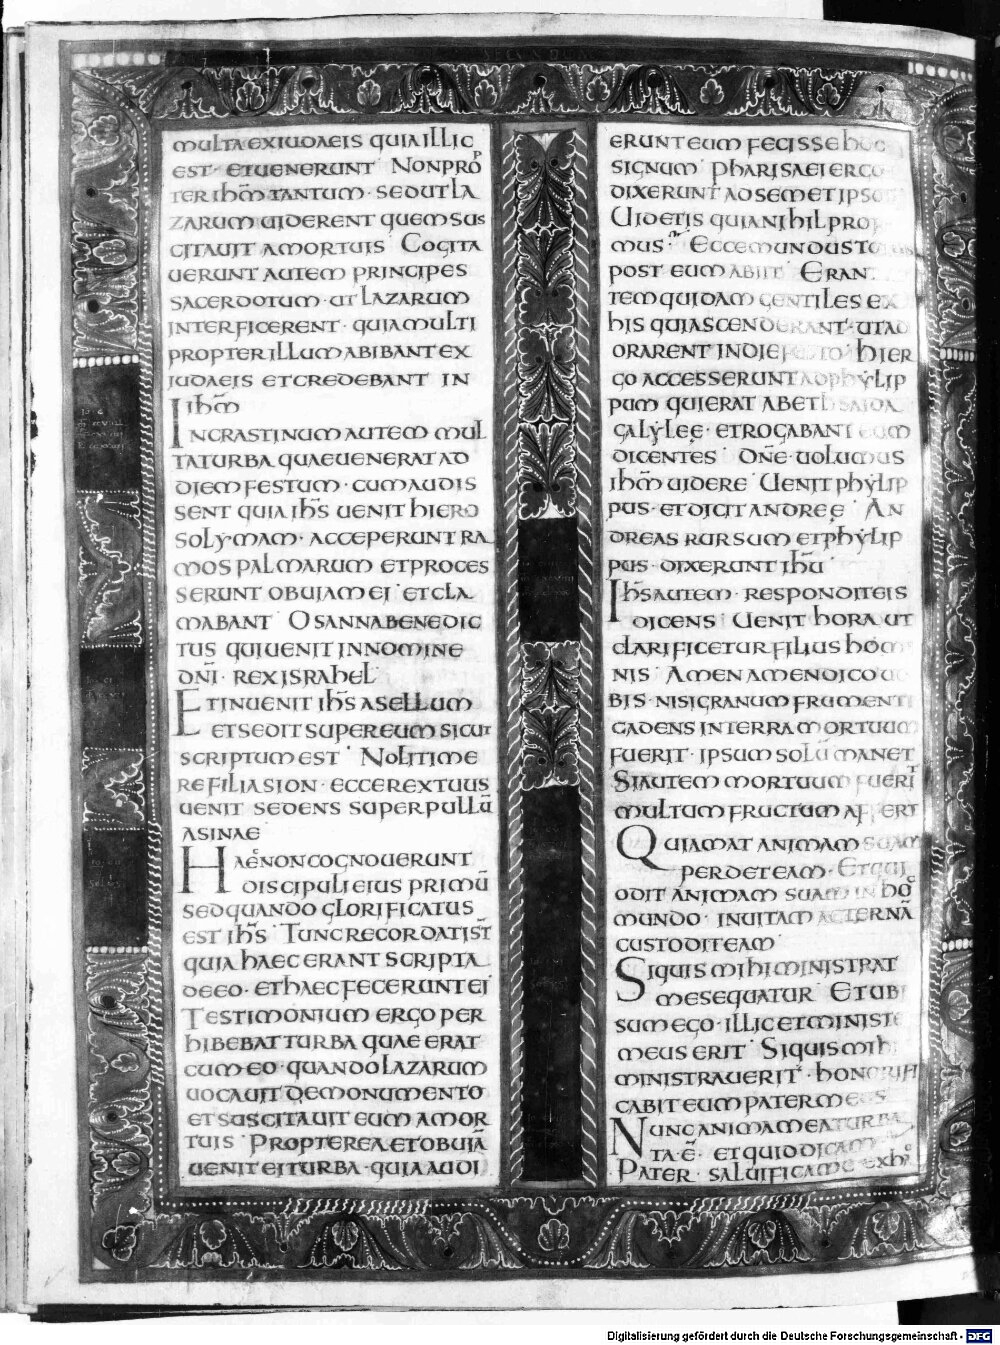 MULTA EX IUDAEIS QUIA ILLIC
EST · ET UENERUNT NON PROP
TER IHM TANTUM · SED UT LA
ZARUM UIDERENT QUEM SUS
CITAUIT A MORTUIS COGITA
UERUNT AUTEM PRINCIPES
SACERDOTUM · UT LAZARUM
INTERFICERENT · QUIA MULTI
PROPTER ILLUM ABIBANT EX
IUDAEIS ET CREDEBANT IN
IHM
IN CRASTINUM AUTEM MUL
TA TURBA QUAE UENERAT AD
DIEM FESTUM · CUM AUDIS
SENT QUIA IHS UENIT HIERO
SOLYMAM · ACCEPERUNT RA
MOS PALMARUM ET PROCES
SERUNT OBUIAM EI · ET CLA
MABANT OSANNA BENEDIC
TUS QUI UENIT IN NOMINE
DNI · REX ISRAHEL
ET INUENIT IHS ASELLUM
ET SEDIT SUPER EUM SICUT
SCRIPTUM EST NOLI TIME
RE FILIA SION · ECCE REX TUUS
UENIT SEDENS SUPER PULLŪ
ASINAE
HAEC NON COGNOUERUNT
DISCIPULI EIUS PRIMŪ
SED QUANDO GLORIFICATUS
EST IHS TUNC RECORDATI ST̄
QUIA HAEC ERANT SCRIPTA
DE EO · ET HAEC FECERUNT EI
TESTIMONIUM ERGO PER
HIBEBAT TURBA QUAE ERAT
CUM EO · QUANDO LAZARUM
UOCAUIT DE MONUMENTO
ET SUSCITAUIT EUM A MOR
TUIS PROPTEREA ET OBUIĀ
UENIT EI TURBA · QUIA AUDI
ERUNT EUM FECISSE HOC
SIGNUM PHARISAEI ERGO
DIXERUNT AD SEMET IPSO
UIDETIS QUIA NIHIL PRO
MUS ECCE MUNDUS TO
POST EUM ABIIT ERAN
TEM QUIDAM GENTILES EX
HIS QUI ASCENDERANT · UT AD
ORARENT IN DIE FESTO HIER
GO ACCESSERUNT AD PHYLIP
PUM QUI ERAT A BETHSAIDA
GALYLEĘ · ET ROGABANT EUM
DICENTES DNE · UOLUMUS
IHM UIDERE UENIT PHYLIP
PUS · ET DICIT ANDREĘ AN
DREAS RURSUM ET PHYLIP
PUS · DIXERUNT IHU
IHS AUTEM · RESPONDIT EIS
DICENS UENIT HORA UT
CLARIFICETUR FILIUS HOMI
NIS AMEN AMEN DICO UO
BIS · NISI GRANUM FRUMENTI
CADENS IN TERRAM MORTUUM
FUERIT · IPSUM SOLŪ MANET
SI AUTEM MORTUUM FUERIT
MULTUM FRUCTUM AFFERT
QUI AMAT ANIMAM SUAM
PERDET EAM · ET QUI
ODIT ANIMAM SUAM IN HOC
MUNDO · IN UITAM AETERNĀ
CUSTODIT EAM
SI QUIS MIHI MINISTRAT
ME SEQUATUR ET UBI
SUM EGO · ILLIC ET MINISTE
MEUS ERIT SI QUIS MIHI
MINISTRAUERIT · HONORIFI
CABIT EUM PATER MEUS
NUNC ANIMA MEA TURBA
TA Ē · ET QUID DICAM
PATER · SALUIFICA ME EX HAC
Digitalisierung gefördert durch die Deutsche Forschungsgemeinschaft - DFG